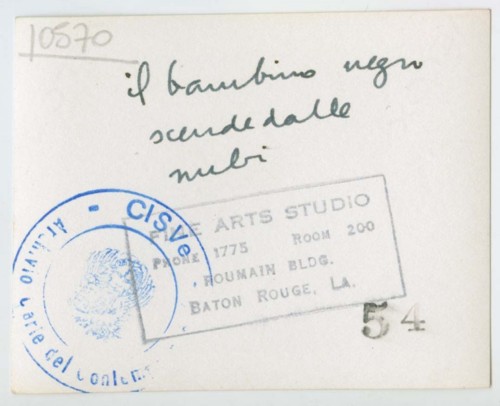 10570
il bambino negro
scende dalle
nubi
CISVe -
Archivio Carte del Contem
FINE ARTS STUDIO
PHONE 1775 ROOM 200
ROUMAIN BLDG.
BATON ROUGE, LA.
54